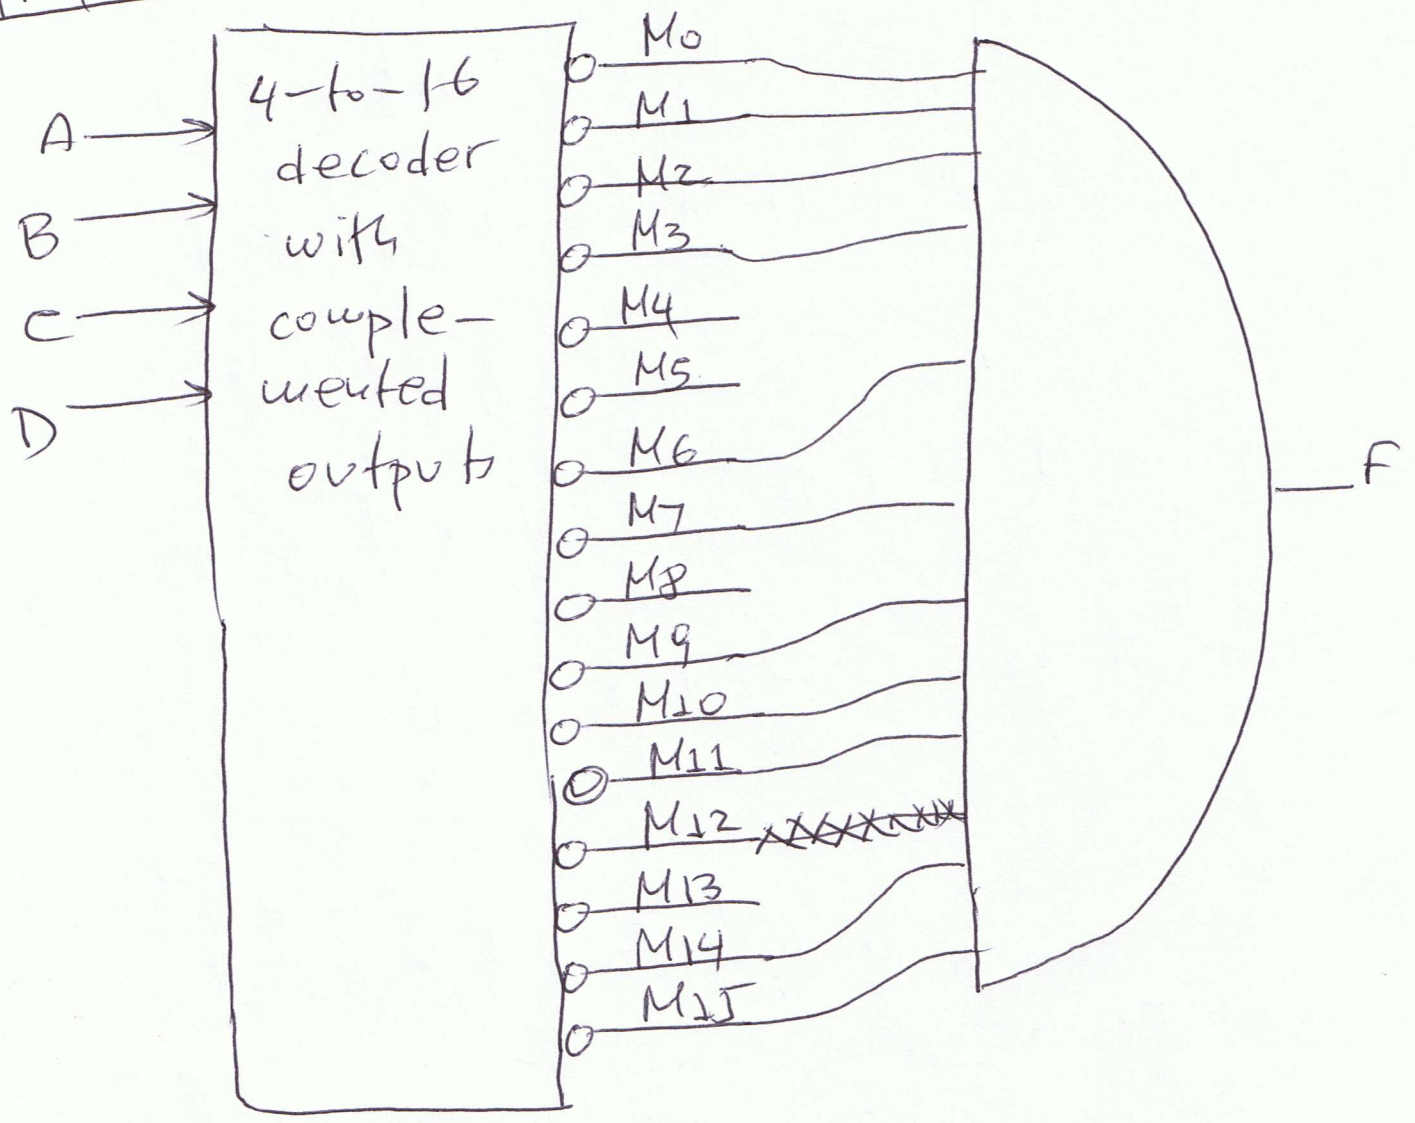 4-to-16
decoder
with
comple-
mented
outputs
A
B
C
D
M0
M1
M2
M3
M4
M5
M6
M7
M8
M9
M10
M11
M12
M13
M14
M15
F